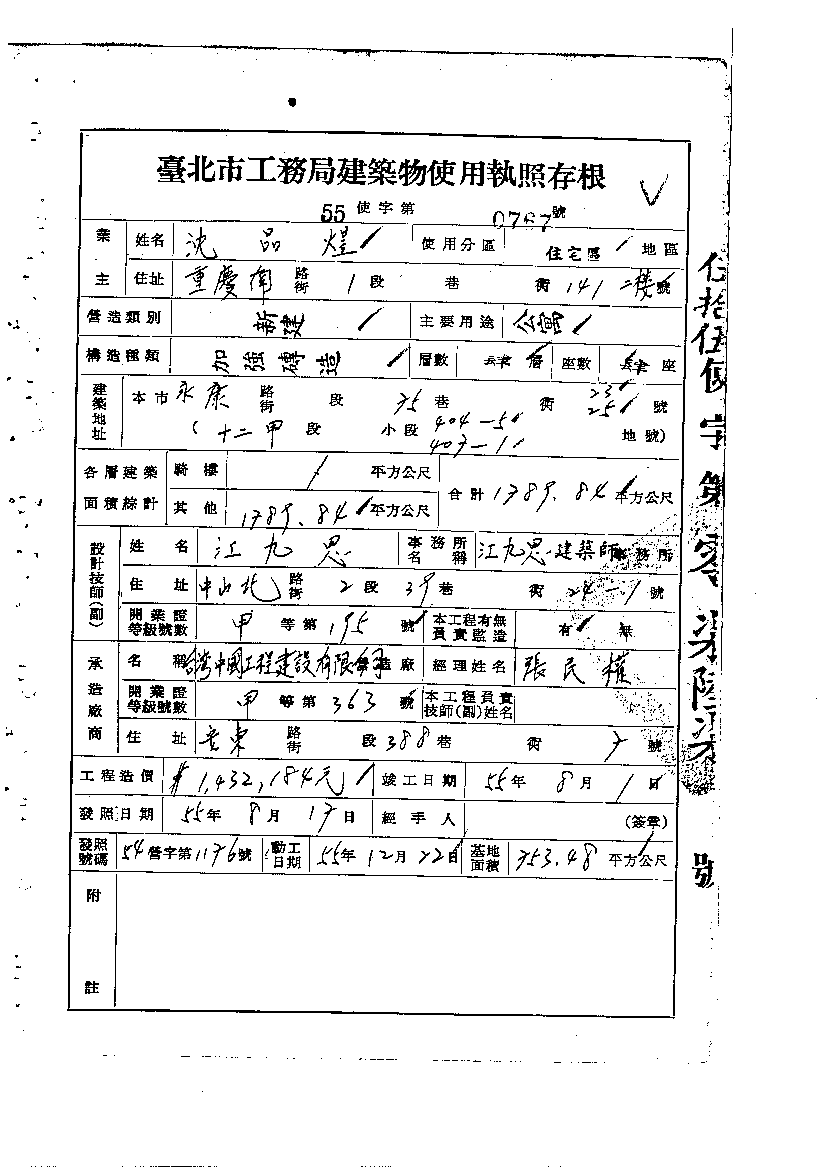 臺北市工務局建築物使用執照存根
55 使字第 0767 號
業主 姓名 沈品煌 使用分區 住宅區 地區
住址 重慶南 路街 1 段 巷 衖 141 二樓 號
營造類別 新建 主要用途 公寓
構造種類 加強磚造 層數 肆 層 座數 肆 座
建築地址 本市 永康 路街 段 75 巷 衖 23 25 號
(十二甲 段 小段 404-5 407-1 地號)
各層建築面積綜計 騎樓 平方公尺 合計 1789.84 平方公尺
其他 1789.84 平方公尺
設計技師(副) 姓名 江九思 事務所名稱 江九思建築師事務所
住址 中山北 路街 2 段 39 巷 衖 24-1 號
開業證等級號數 甲 等第 195 號 本工程有無負責監造 有 無
承造廠商 名稱 台灣中國工程建設有限公司 造廠 經理姓名 張民權
開業證等級號數 甲 等第 363 號 本工程負責技師(副)姓名
住址 路街 段 388 巷 衖 7 號
工程造價 1,432,184元 竣工日期 55年 8月 1日
發照日期 55年 8月 17日 經手人 (簽章)
發照號碼 54營字第1176號 動工日期 55年 12月 22日 基地面積 753.48 平方公尺
附註
伍拾伍使字第零柒陸柒號